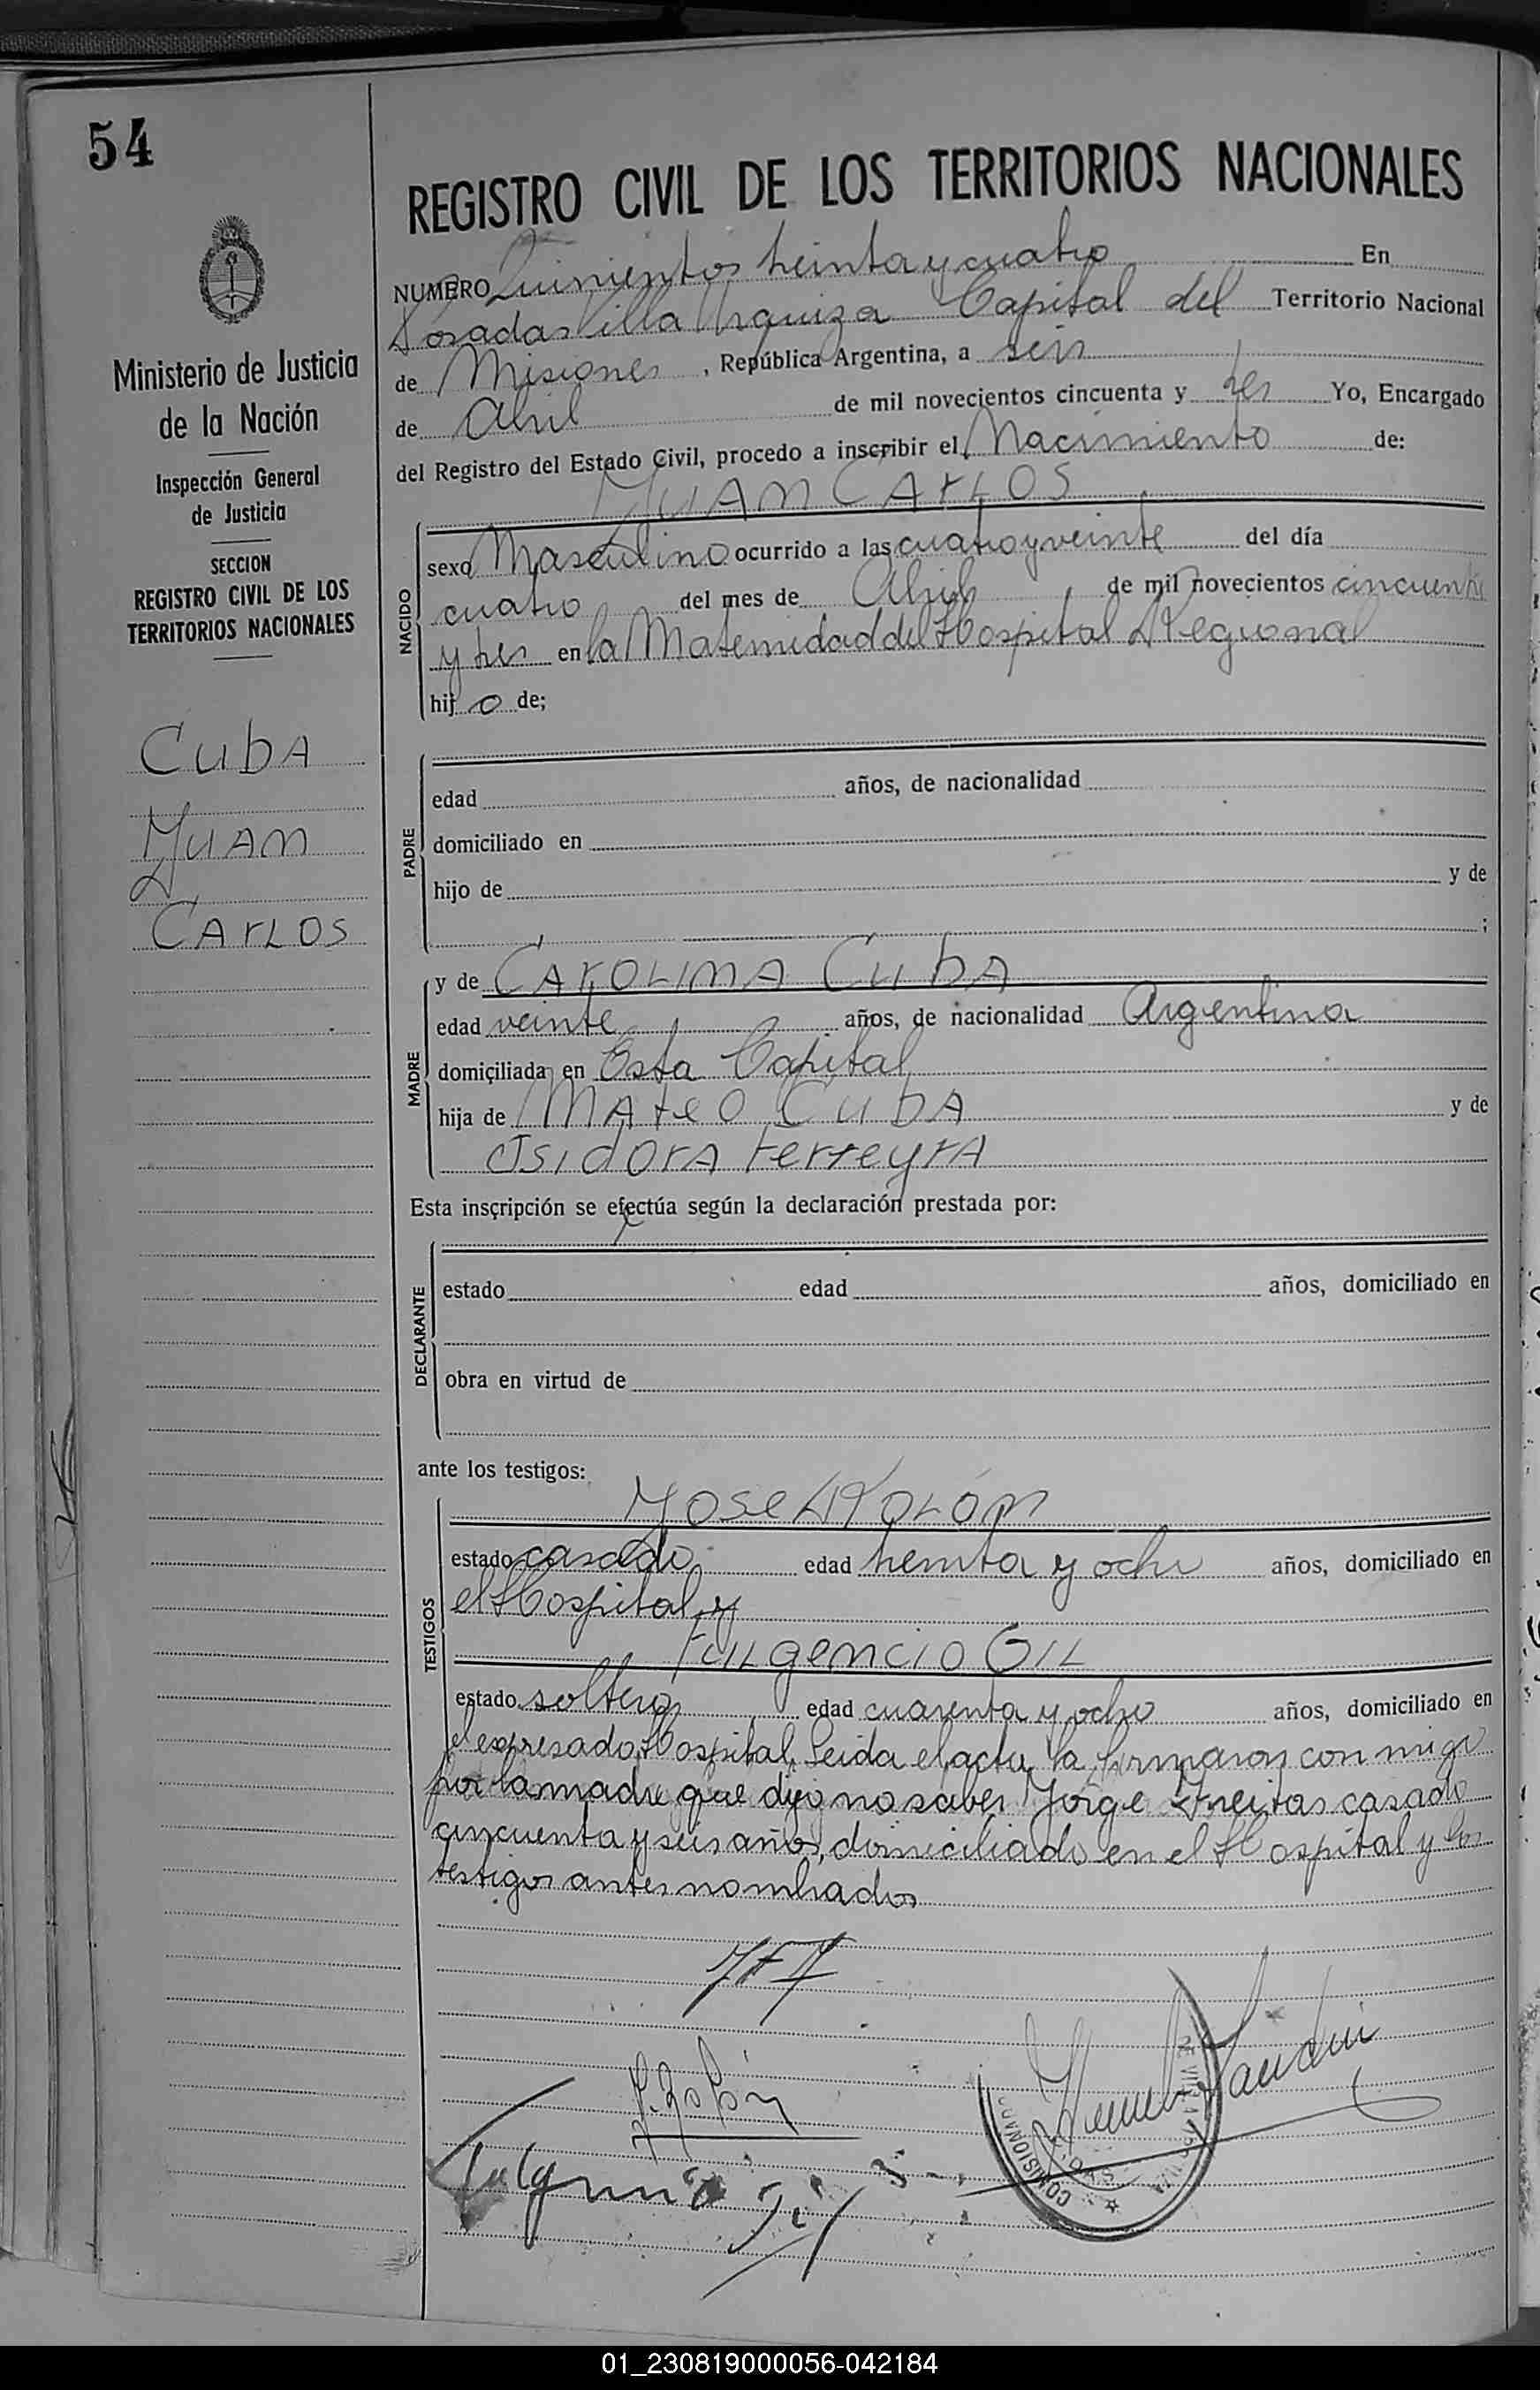 54
Ministerio de Justicia
de la Nación
Inspección General
de Justicia
SECCION
REGISTRO CIVIL DE LOS
TERRITORIOS NACIONALES
Cuba
Juan
Carlos
REGISTRO CIVIL DE LOS TERRITORIOS NACIONALES
NUMERO Quinientos treinta y cuatro En
Posadas Villa Urquiza Capital del Territorio Nacional
de Misiones, República Argentina, a seis
de Abril de mil novecientos cincuenta y tres Yo, Encargado
del Registro del Estado Civil, procedo a inscribir el Nacimiento de:
JUAN CARLOS
NACIDO
sexo Masculino ocurrido a las cuatro y veinte del día
cuatro del mes de Abril de mil novecientos cincuenta
y tres en la Maternidad del Hospital Regional
hijo de;
PADRE
edad años, de nacionalidad
domiciliado en
hijo de y de
;
MADRE
y de Carolina Cuba
edad veinte años, de nacionalidad Argentina
domiciliada en Esta Capital
hija de Mateo Cuba y de
Isidora Ferreyra
Esta inscripción se efectúa según la declaración prestada por:
DECLARANTE
estado edad años, domiciliado en
obra en virtud de
ante los testigos:
TESTIGOS
Jose Rolón
estado casado edad treinta y ocho años, domiciliado en
el Hospital y
Fulgencio Gil
estado soltero edad cuarenta y ocho años, domiciliado en
el expresado Hospital. Leida el acta la firmaron con migo
por la madre que dijo no saber Jorge Freitas casado
cincuenta y seis años, domiciliado en el Hospital y los
testigos antes nombrados
J. Rolón
Fulgencio Gil
COMISIONADO
01_230819000056-042184